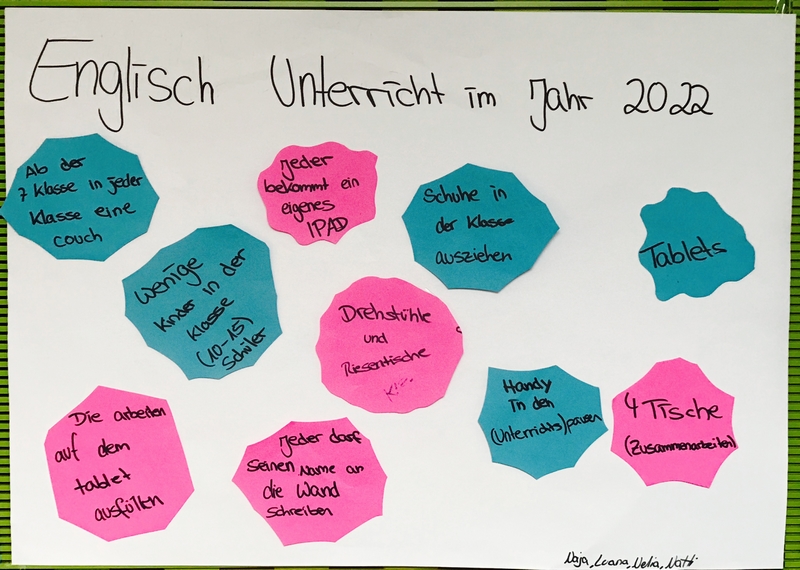 Englisch Unterricht im Jahr 2022
Ab der
7 Klasse in jeder
Klasse eine
couch
Jeder
bekommt ein
eigenes
IPAD
Schuhe in
der Klasse
ausziehen
Tablets
Wenige
Kinder in der
Klasse
(10-15)
Schüler
Drehstühle
und
Riesentische
Handy
in den
(Unterrichts)pausen
4 Tische
(Zusammenarbeiten)
Die arbeiten
auf dem
tablet
ausfüllen
Jeder darf
seinen Name an
die Wand
schreiben
Naja, Luana, Nelia,